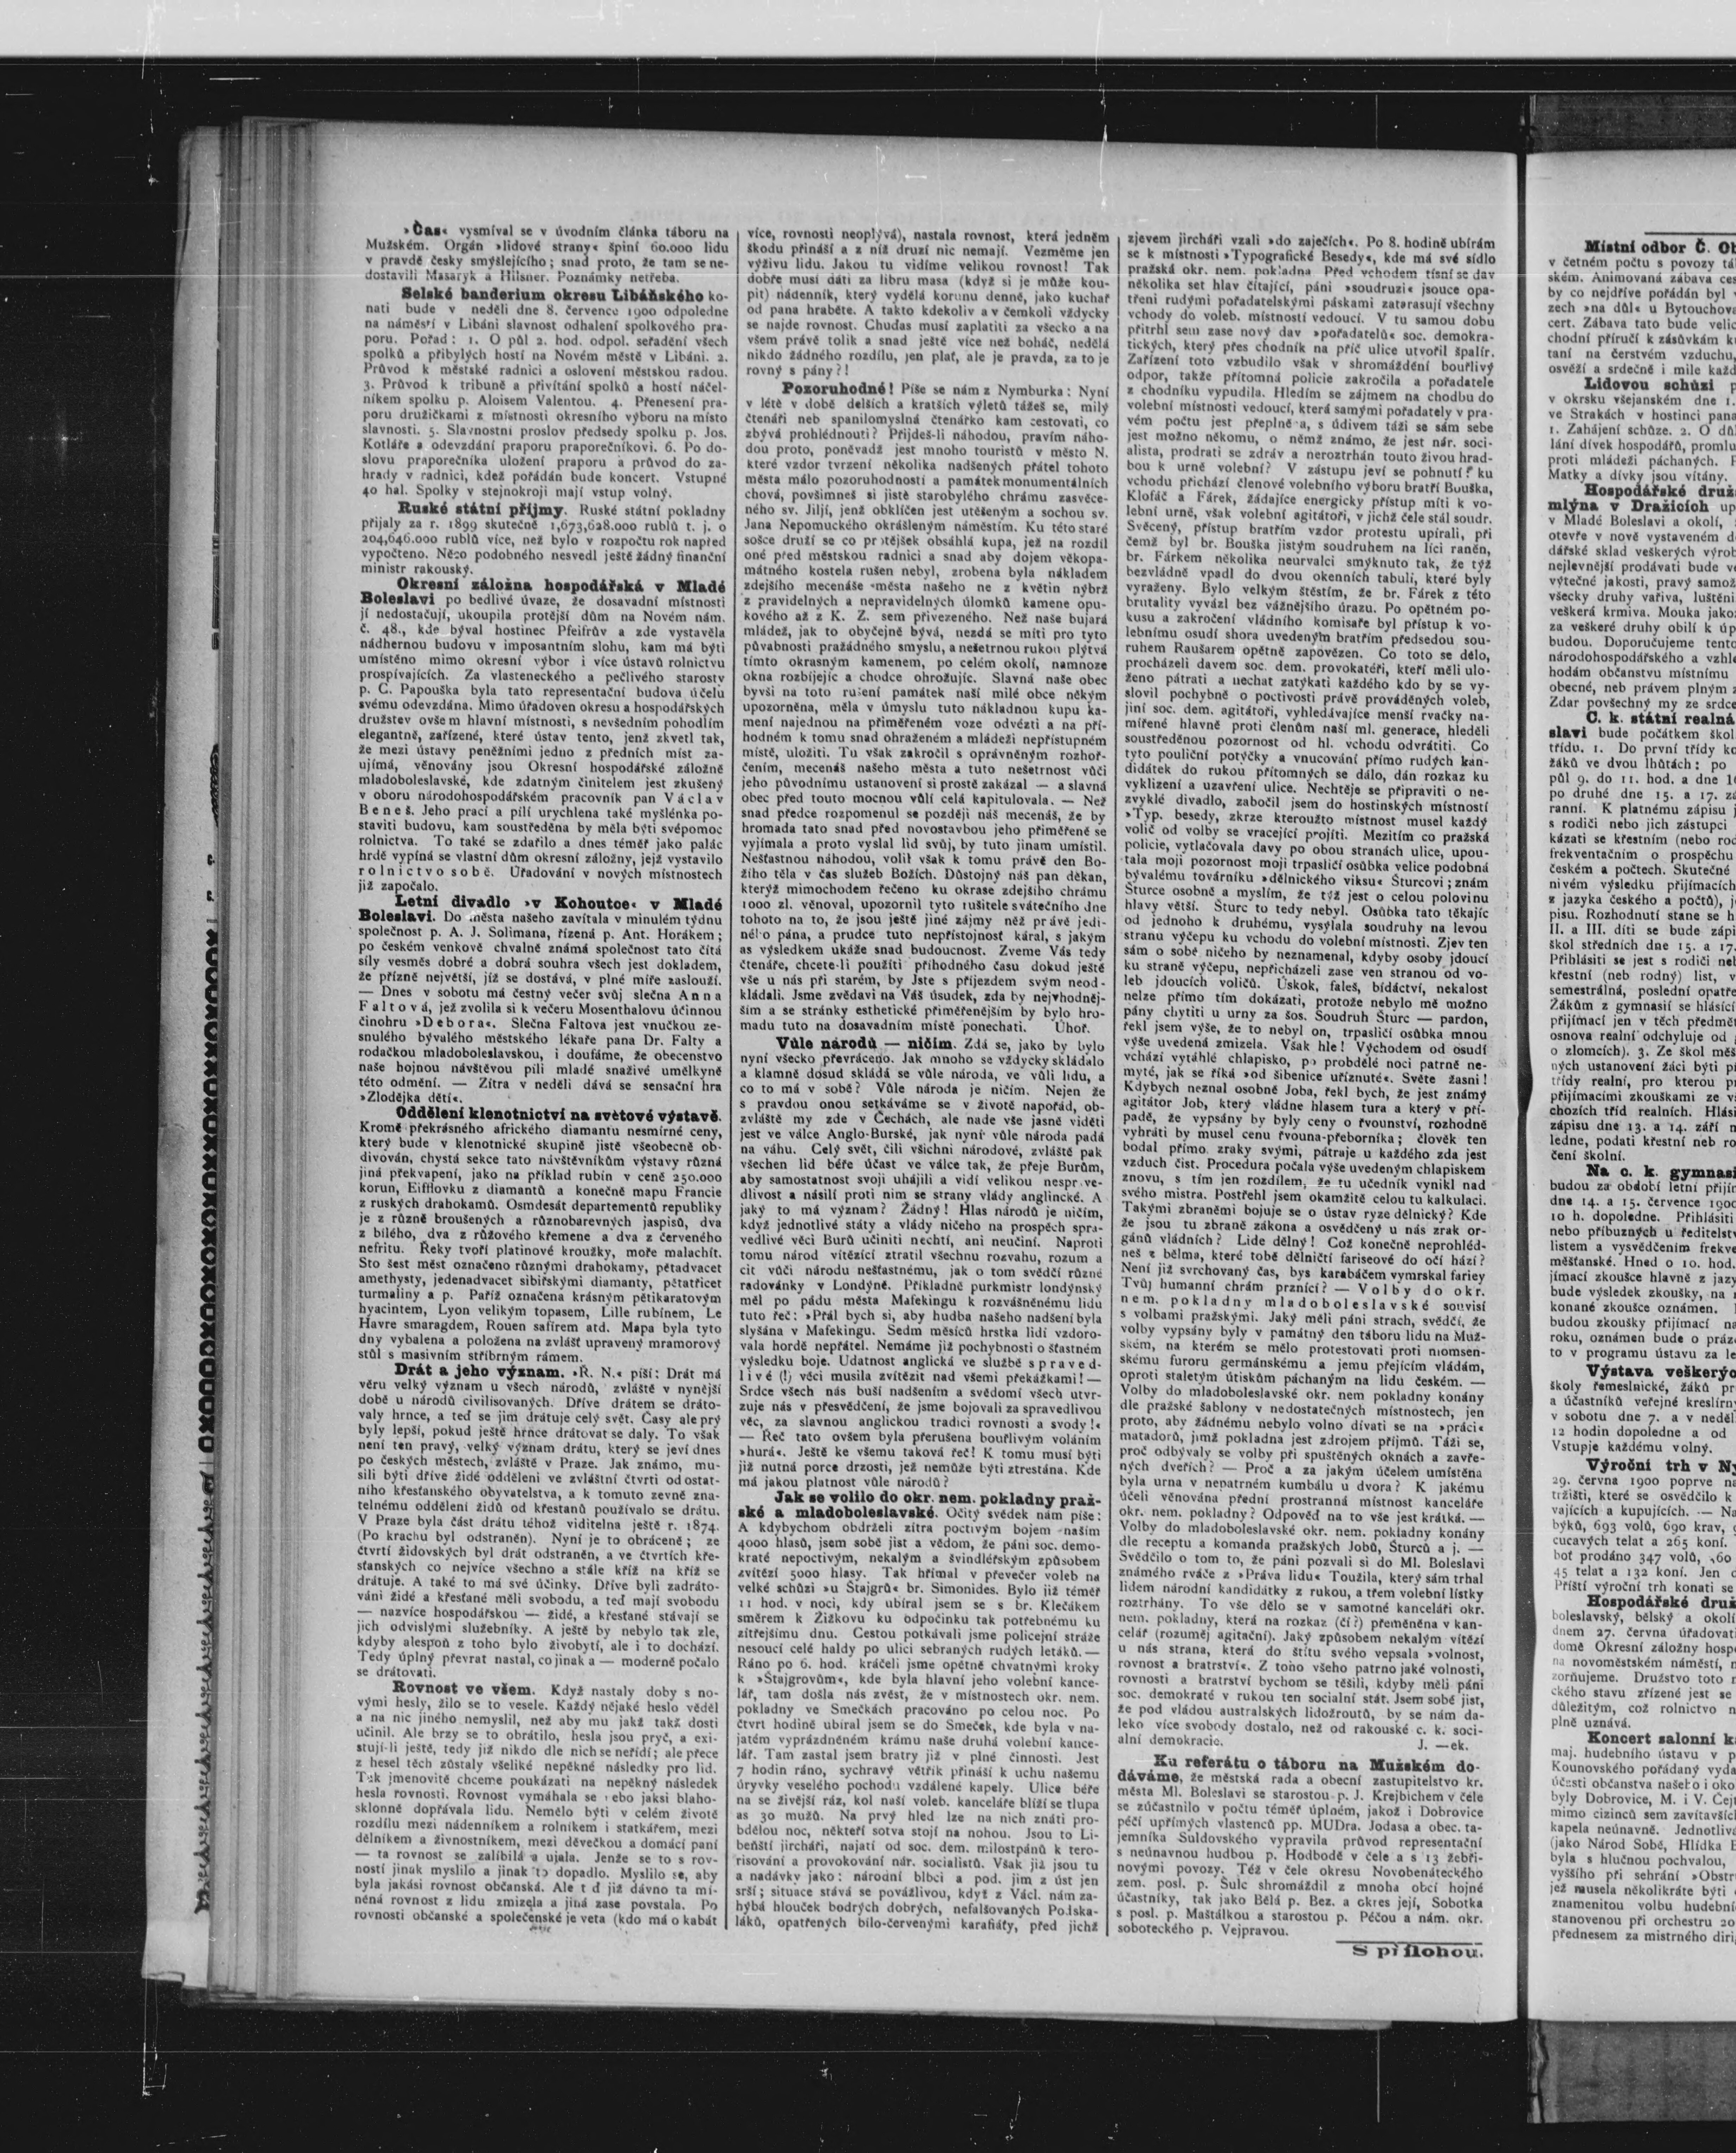 »Čas« vysmíval se v úvodním článka táboru na
Mužském. Orgán »lidové strany« špiní 60.000 lidu
v pravdě česky smýšlejícího; snad proto, že tam se ne-
dostavili Masaryk a Hilsner. Poznámky netřeba.
Selské banderium okresu Libáňského ko-
nati bude v neděli dne 8. července 1900 odpoledne
na náměstí v Libáni slavnost odhalení spolkového pra-
poru. Pořad: 1. O půl 2. hod. odpol. seřadění všech
spolků a přibylých hostí na Novém městě v Libáni. 2.
Průvod k městské radnici a oslovení městskou radou.
3. Průvod k tribuně a přivítání spolků a hostí náčel-
níkem spolku p. Aloisem Valentou. 4. Přenesení pra-
poru družičkami z místnosti okresního výboru na místo
slavnosti. 5. Slavnostní proslov předsedy spolku p. Jos.
Kotláře a odevzdání praporu praporečníkovi. 6. Po do-
slovu praporečníka uložení praporu a průvod do za-
hrady v radnici, kdež pořádán bude koncert. Vstupné
40 hal. Spolky v stejnokroji mají vstup volný.
Ruské státní příjmy. Ruské státní pokladny
přijaly za r. 1899 skutečně 1,673,628.000 rublů t. j. o
204,646.000 rublů více, než bylo v rozpočtu rok napřed
vypočteno. Něco podobného nesvedl ještě žádný finanční
ministr rakouský.
Okresní záložna hospodářská v Mladé
Boleslavi po bedlivé úvaze, že dosavadní místnosti
jí nedostačují, ukoupila protější dům na Novém nám.
č. 48., kde býval hostinec Pfeifrův a zde vystavěla
nádhernou budovu v imposantním slohu, kam má býti
umístěno mimo okresní výbor i více ústavů rolnictvu
prospívajících. Za vlasteneckého a pečlivého starosty
p. C. Papouška byla tato representační budova účelu
svému odevzdána. Mimo úřadoven okresu a hospodářských
družstev ovšem hlavní místnosti, s nevšedním pohodlím
elegantně, zařízené, které ústav tento, jenž zkvetl tak,
že mezi ústavy peněžními jedno z předních míst za-
ujímá, věnovány jsou Okresní hospodářské záložně
mladoboleslavské, kde zdatným činitelem jest zkušený
v oboru národohospodářském pracovník pan Václav
Beneš. Jeho prací a pílí urychlena také myšlénka po-
staviti budovu, kam soustředěna by měla býti svépomoc
rolnictva. To také se zdařilo a dnes téměř jako palác
hrdě vypíná se vlastní dům okresní záložny, jejž vystavilo
rolnictvo sobě. Úřadování v nových místnostech
již započalo.
Letní divadlo »v Kohoutce« v Mladé
Boleslavi. Do města našeho zavítala v minulém týdnu
společnost p. A. J. Solimana, řízená p. Ant. Horákem;
po českém venkově chvalně známá společnost tato čítá
síly vesměs dobré a dobrá souhra všech jest dokladem,
že přízně největší, jíž se dostává, v plné míře zaslouží.
— Dnes v sobotu má čestný večer svůj slečna Anna
Faltová, jež zvolila si k večeru Mosenthalovu účinnou
činohru »Debora«. Slečna Faltova jest vnučkou ze-
snulého bývalého městského lékaře pana Dr. Falty a
rodačkou mladoboleslavskou, i doufáme, že obecenstvo
naše hojnou návštěvou píli mladé snaživé umělkyně
této odmění. — Zítra v neděli dává se sensační hra
»Zlodějka dětí«.
Oddělení klenotnictví na světové výstavě.
Kromě překrásného afrického diamantu nesmírné ceny,
který bude v klenotnické skupině jistě všeobecně ob-
divován, chystá sekce tato návštěvníkům výstavy různá
jiná překvapení, jako na příklad rubín v ceně 250.000
korun, Eifflovku z diamantů a konečně mapu Francie
z ruských drahokamů. Osmdesát departementů republiky
je z různě broušených a různobarevných jaspisů, dva
z bílého, dva z růžového křemene a dva z červeného
nefritu. Řeky tvoří platinové kroužky, moře malachit.
Sto šest měst označeno různými drahokamy, pětadvacet
amethysty, jedenadvacet sibiřskými diamanty, pětatřicet
turmaliny a p. Paříž označena krásným pětikaratovým
hyacintem, Lyon velikým topasem, Lille rubínem, Le
Havre smaragdem, Rouen safírem atd. Mapa byla tyto
dny vybalena a položena na zvlášť upravený mramorový
stůl s masivním stříbrným rámem.
Drát a jeho význam. »Ř. N.« píší: Drát má
věru velký význam u všech národů, zvláště v nynější
době u národů civilisovaných. Dříve drátem se dráto-
valy hrnce, a teď se jím drátuje celý svět. Časy ale prý
byly lepší, pokud ještě hrnce drátovat se daly. To však
není ten pravý, velký význam drátu, který se jeví dnes
po českých městech, zvláště v Praze. Jak známo, mu-
sili býti dříve židé odděleni ve zvláštní čtvrti od ostat-
ního křesťanského obyvatelstva, a k tomuto zevně zna-
telnému oddělení židů od křesťanů používalo se drátu.
V Praze byla část drátu téhož viditelna ještě r. 1874.
(Po krachu byl odstraněn). Nyní je to obráceně; ze
čtvrtí židovských byl drát odstraněn, a ve čtvrtích kře-
sťanských co nejvíce všechno a stále kříž na kříž se
drátuje. A také to má své účinky. Dříve byli zadráto-
váni židé a křesťané měli svobodu, a teď mají svobodu
— nazvíce hospodářskou — židé, a křesťané stávají se
jich odvislými služebníky. A ještě by nebylo tak zle,
kdyby alespoň z toho bylo živobytí, ale i to dochází.
Tedy úplný převrat nastal, co jinak a — moderně počalo
se drátovati.
Rovnost ve všem. Když nastaly doby s no-
vými hesly, žilo se to vesele. Každý nějaké heslo věděl
a na nic jiného nemyslil, než aby mu jakž takž dosti
učinil. Ale brzy se to obrátilo, hesla jsou pryč, a exi-
stují-li ještě, tedy již nikdo dle nich se neřídí; ale přece
z hesel těch zůstaly všeliké nepěkné následky pro lid.
Tak jmenovitě chceme poukázati na nepěkný následek
hesla rovnosti. Rovnost vymáhala se nebo jaksi blaho-
sklonně dopřávala lidu. Nemělo býti v celém životě
rozdílu mezi nádenníkem a rolníkem i statkářem, mezi
dělníkem a živnostníkem, mezi děvečkou a domácí paní
— ta rovnost se zalíbila a ujala. Jenže se to s rov-
ností jinak myslilo a jinak to dopadlo. Myslilo se, aby
byla jakási rovnost občanská. Ale t d již dávno ta mí-
něná rovnost z lidu zmizela a jiná zase povstala. Po
rovnosti občanské a společenské je veta (kdo má o kabát
více, rovnosti neoplývá), nastala rovnost, která jedněm
škodu přináší a z níž druzí nic nemají. Vezměme jen
výživu lidu. Jakou tu vidíme velikou rovnost! Tak
dobře musí dáti za libru masa (když si je může kou-
pit) nádenník, který vydělá korunu denně, jako kuchař
od pana hraběte. A takto kdekoliv a v čemkoli vždycky
se najde rovnost. Chuďas musí zaplatiti za všecko a na
všem právě tolik a snad ještě více než boháč, nedělá
nikdo žádného rozdílu, jen plať, ale je pravda, za to je
rovný s pány?!
Pozoruhodné! Píše se nám z Nymburka: Nyní
v létě v době delších a kratších výletů tážeš se, milý
čtenáři neb spanilomyslná čtenárko kam cestovati, co
zbývá prohlédnouti? Přijdeš-li náhodou, pravím náho-
dou proto, poněvadž jest mnoho touristů v město N.
které vzdor tvrzení několika nadšených přátel tohoto
města málo pozoruhodností a památek monumentálních
chová, povšimneš si jistě starobylého chrámu zasvěce-
ného sv. Jiljí, jenž obklíčen jest utěšeným a sochou sv.
Jana Nepomuckého okrášleným náměstím. Ku této staré
sošce druží se co protějšek obsáhlá kupa, jež na rozdíl
oné před městskou radnici a snad aby dojem věkopa-
mátného kostela rušen nebyl, zrobena byla nákladem
zdejšího mecenáše města našeho ne z květin nýbrž
z pravidelných a nepravidelných úlomků kamene opu-
kového až z K. Z. sem přivezeného. Než naše bujará
mládež, jak to obyčejně bývá, nezdá se míti pro tyto
půvabnosti pražádného smyslu, a nešetrnou rukou plýtvá
tímto okrasným kamenem, po celém okolí, namnoze
okna rozbíjejíc a chodce ohrožujíc. Slavná naše obec
byvši na toto rušení památek naší milé obce někým
upozorněna, měla v úmyslu tuto nákladnou kupu ka-
mení najednou na přiměřeném voze odvézti a na pří-
hodném k tomu snad ohraženém a mládeži nepřístupném
místě, uložiti. Tu však zakročil s oprávněným rozhoř-
čením, mecenáš našeho města a tuto nešetrnost vůči
jeho původnímu ustanovení si prostě zakázal — a slavná
obec před touto mocnou vůlí celá kapitulovala. — Než
snad předce rozpomenul se později náš mecenáš, že by
hromada tato snad před novostavbou jeho přiměřeně se
vyjímala a proto vyslal lid svůj, by tuto jinam umístil.
Nešťastnou náhodou, volil však k tomu právě den Bo-
žího těla v čas služeb Božích. Důstojný náš pan děkan,
kterýž mimochodem řečeno ku okrase zdejšího chrámu
1000 zl. věnoval, upozornil tyto rušitele svátečního dne
tohoto na to, že jsou ještě jiné zájmy něž právě jedi-
ného pána, a prudce tuto nepřístojnost káral, s jakým
as výsledkem ukáže snad budoucnost. Zveme Vás tedy
čtenáře, chcete-li použíti příhodného času dokud ještě
vše u nás při starém, by Jste s příjezdem svým neod-
kládali. Jsme zvědavi na Váš úsudek, zda by nejvhodněj-
ším a se stránky esthetické přiměřenějším by bylo hro-
madu tuto na dosavadním místě ponechati. Úhoř.
Vůle národů — ničím. Zdá se, jako by bylo
nyní všecko převráceno. Jak mnoho se vždycky skládalo
a klamně dosud skládá se vůle národa, ve vůli lidu, a
co to má v sobě? Vůle národa je ničím. Nejen že
s pravdou onou setkáváme se v životě napořád, ob-
zvláště my zde v Čechách, ale nade vše jasně viděti
jest ve válce Anglo-Burské, jak nyní vůle národa padá
na váhu. Celý svět, čili všichni národové, zvláště pak
všechen lid béře účast ve válce tak, že přeje Burům,
aby samostatnost svoji uhájili a vidí velikou nesprave-
dlivost a násilí proti nim se strany vlády anglincké. A
jaký to má význam? Žádný! Hlas národů je ničím,
když jednotlivé státy a vlády ničeho na prospěch spra-
vedlivé věci Burů učiniti nechtí, ani neučiní. Naproti
tomu národ vítězící ztratil všechnu rozvahu, rozum a
cit vůči národu nešťastnému, jak o tom svědčí různé
radovánky v Londýně. Příkladně purkmistr londýnský
měl po pádu města Mafekingu k rozvášněnému lidu
tuto řeč: »Přál bych si, aby hudba našeho nadšení byla
slyšána v Mafekingu. Sedm měsíců hrstka lidí vzdoro-
vala hordě nepřátel. Nemáme již pochybnosti o šťastném
výsledku boje. Udatnost anglická ve službě spraved-
livé (!) věci musila zvítězit nad všemi překážkami! —
Srdce všech nás buší nadšením a svědomí všech utvr-
zuje nás v přesvědčení, že jsme bojovali za spravedlivou
věc, za slavnou anglickou tradici rovnosti a svody!«
— Řeč tato ovšem byla přerušena bouřlivým voláním
»hurá«. Ještě ke všemu taková řeč! K tomu musí býti
již nutná porce drzosti, jež nemůže býti ztrestána. Kde
má jakou platnost vůle národů?
Jak se volilo do okr. nem. pokladny praž-
ské a mladoboleslavské. Očitý svědek nám píše:
A kdybychom obdrželi zítra poctivým bojem našim
4000 hlasů, jsem sobě jist a vědom, že páni soc. demo-
kraté nepoctivým, nekalým a švindléřským způsobem
zvítězí 5000 hlasy. Tak hřímal v převečer voleb na
velké schůzi »u Štajgrů« br. Simonides. Bylo již téměř
11 hod. v noci, kdy ubíral jsem se s br. Klečákem
směrem k Žižkovu ku odpočinku tak potřebnému ku
zítřejšímu dnu. Cestou potkávali jsme policejní stráže
nesoucí celé haldy po ulici sebraných rudých letáků. —
Ráno po 6. hod. kráčeli jsme opětně chvatnými kroky
k »Štajgrovům«, kde byla hlavní jeho volební kance-
lář, tam došla nás zvěst, že v místnostech okr. nem.
pokladny ve Smečkách pracováno po celou noc. Po
čtvrt hodině ubíral jsem se do Smeček, kde byla v na-
jatém vyprázdněném krámu naše druhá volební kance-
lář. Tam zastal jsem bratry již v plné činnosti. Jest
7 hodin ráno, sychravý větřík přináší k uchu našemu
úryvky veselého pochodu vzdálené kapely. Ulice béře
na se živější ráz, kol naší voleb. kanceláře blíží se tlupa
as 30 mužů. Na prvý hled lze na nich znáti pro-
bdělou noc, někteří sotva stojí na nohou. Jsou to Li-
beňští jircháři, najatí od soc. dem. milostpánů k tero-
risování a provokování nár. socialistů. Však již jsou tu
a nadávky jako: národní blbci a pod. jim z úst jen
srší; situace stává se povážlivou, když z Václ. nám za-
hýbá hlouček bodrých dobrých, nefalšovaných Podska-
láků, opatřených bílo-červenými karafiáty, před jichž
zjevem jircháři vzali »do zaječích«. Po 8. hodině ubírám
se k místnosti »Typografické Besedy«, kde má své sídlo
pražská okr. nem. pokladna Před vchodem tísní se dav
několika set hlav čítající, páni »soudruzi« jsouce opa-
třeni rudými pořadatelskými páskami zatarasují všechny
vchody do voleb. místností vedoucí. V tu samou dobu
přitrhl sem zase nový dav »pořadatelů« soc. demokra-
tických, který přes chodník na příč ulice utvořil špalír.
Zařízení toto vzbudilo však v shromáždění bouřlivý
odpor, takže přítomná policie zakročila a pořadatele
z chodníku vypudila. Hledím se zájmem na chodbu do
volební místnosti vedoucí, která samými pořadately v pra-
vém počtu jest přeplněna, s údivem táži se sám sebe
jest možno někomu, o němž známo, že jest nár. soci-
alista, prodrati se zdráv a neroztrhán touto živou hrad-
bou k urně volební? V zástupu jeví se pohnutí? ku
vchodu přichází členové volebního výboru bratří Bouška,
Klofáč a Fárek, žádajíce energicky přístup míti k vo-
lební urně, však volební agitátoři, v jichž čele stál soudr.
Svěcený, přístup bratřím vzdor protestu upírali, při
čemž byl br. Bouška jistým soudruhem na líci raněn,
br. Fárkem několika neurvalci smýknuto tak, že týž
bezvládně vpadl do dvou okenních tabulí, které byly
vyraženy. Bylo velkým štěstím, že br. Fárek z této
brutality vyvázl bez vážnějšího úrazu. Po opětném po-
kusu a zakročení vládního komisaře byl přístup k vo-
lebnímu osudí shora uvedeným bratřím předsedou sou-
ruhem Raušarem opětně zapovězen. Co toto se dělo,
procházeli davem soc. dem. provokatéři, kteří měli ulo-
ženo pátrati a nechat zatýkati každého kdo by se vy-
slovil pochybně o poctivosti právě prováděných voleb,
jiní soc. dem. agitátoři, vyhledávajíce menší rvačky na-
mířené hlavně proti členům naší ml. generace, hleděli
soustředěnou pozornost od hl. vchodu odvrátiti. Co
tyto pouliční potýčky a vnucování přímo rudých kan-
didátek do rukou přítomných se dálo, dán rozkaz ku
vyklizení a uzavření ulice. Nechtěje se připraviti o ne-
zvyklé divadlo, zabočil jsem do hostinských místností
»Typ. besedy, zkrze kteroužto místnost musel každý
volič od volby se vracející projíti. Mezitím co pražská
policie, vytlačovala davy po obou stranách ulice, upou-
tala moji pozornost moji trpasličí osůbka velice podobná
bývalému továrníku »dělnického viksu« Šturcovi; znám
Šturce osobně a myslím, že týž jest o celou polovinu
hlavy větší. Šturc to tedy nebyl. Osůbka tato těkajíc
od jednoho k druhému, vysýlala soudruhy na levou
stranu výčepu ku vchodu do volební místnosti. Zjev ten
sám o sobě ničeho by neznamenal, kdyby osoby jdoucí
ku straně výčepu, nepřicházeli zase ven stranou od vo-
leb jdoucích voličů. Úskok, faleš, bídáctví, nekalost
nelze přímo tím dokázati, protože nebylo mě možno
pány chytiti u urny za šos. Soudruh Šturc — pardon,
řekl jsem výše, že to nebyl on, trpasličí osůbka mnou
výše uvedená zmizela. Však hle! Východem od osudí
vchází vytáhlé chlapisko, po probdělé noci patrně ne-
myté, jak se říká »od šibenice uříznuté«. Světe žasni!
Kdybych neznal osobně Joba, řekl bych, že jest známý
agitátor Job, který vládne hlasem tura a který v pří-
padě, že vypsány by byly ceny o řvounství, rozhodně
vyhráti by musel cenu řvouna-přeborníka; člověk ten
bodal přímo zraky svými, pátraje u každého zda jest
vzduch čist. Procedura počala výše uvedeným chlapiskem
znovu, s tím jen rozdílem, že tu učedník vynikl nad
svého mistra. Postřehl jsem okamžitě celou tu kalkulaci.
Takými zbraněmi bojuje se o ústav ryze dělnický? Kde
že jsou tu zbraně zákona a osvědčený u nás zrak or-
gánů vládních? Lide dělný! Což konečně neprohléd-
neš z bělma, které tobě dělničtí fariseové do očí hází?
Není již svrchovaný čas, bys karabáčem vymrskal fariey
Tvůj humanní chrám przníci? — Volby do okr.
nem. pokladny mladoboleslavské souvisí
s volbami pražskými. Jaký měli páni strach, svědčí, že
volby vypsány byly v památný den táboru lidu na Muž-
ském, na kterém se mělo protestovati proti niomsen-
skému furoru germánskému a jemu přejícím vládám,
oproti staletým útiskům páchaným na lidu českém. —
Volby do mladoboleslavské okr. nem pokladny konány
dle pražské šablony v nedostatečných místnostech, jen
proto, aby žádnému nebylo volno dívati se na »práci«
matadorů, jimž pokladna jest zdrojem příjmů. Táži se,
proč odbývaly se volby při spuštěných oknách a zavře-
ných dveřích? — Proč a za jakým účelem umístěna
byla urna v nepatrném kumbálu u dvora? K jakému
účeli věnována přední prostranná místnost kanceláře
okr. nem. pokladny? Odpověď na to vše jest krátká. —
Volby do mladoboleslavské okr. nem. pokladny konány
dle receptu a komanda pražských Jobů, Šturců a j. —
Svědčilo o tom to, že páni pozvali si do Ml. Boleslavi
známého rváče z »Práva lidu« Toužila, který sám trhal
lidem národní kandidátky z rukou, a třem volební lístky
roztrhány. To vše dělo se v samotné kanceláři okr.
nem. pokladny, která na rozkaz (čí?) přeměněna v kan-
celář (rozuměj agitační). Jaký způsobem nekalým vítězí
u nás strana, která do štítu svého vepsala »volnost,
rovnost a bratrství«. Z toho všeho patrno jaké volnosti,
rovnosti a bratrství bychom se těšili, kdyby měli páni
soc. demokraté v rukou ten socialní stát. Jsem sobě jist,
že pod vládou australských lidožroutů, by se nám da-
leko více svobody dostalo, než od rakouské c. k. soci-
alní demokracie. J. —ek.
Ku referátu o táboru na Mužském do-
dáváme, že městská rada a obecní zastupitelstvo kr.
města Ml. Boleslavi se starostou p. J. Krejbichem v čele
se zúčastnilo v počtu téměř úplném, jakož i Dobrovice
péčí upřímých vlastenců pp. MUDra. Jodasa a obec. ta-
jemníka Suldovského vypravila průvod representační
s neúnavnou hudbou p. Hodboďe v čele a s 13 žebři-
novými povozy. Též v čele okresu Novobenáteckého
zem. posl. p. Šulc shromáždil z mnoha obcí hojné
účastníky, tak jako Bělá p. Bez. a okres její, Sobotka
s posl. p. Maštálkou a starostou p. Péčou a nám. okr.
soboteckého p. Vejpravou.
S přílohou.
Místní odbor Č. Ob
v četném počtu s povozy tá
ském. Animovaná zábava ces
by co nejdříve pořádán byl
zech »na důl« u Bytouchova
cert. Zábava tato bude velic
chodní příručí k zásůvkám k
taní na čerstvém vzduchu,
osvěží a srdečně i mile každ
Lidovou schůzi p
v okrsku všejanském dne 1.
ve Strakách v hostinci pana
1. Zahájení schůze. 2. O dů
lání dívek hospodářů, promlu
proti mládeži páchaných. P
Matky a dívky jsou vítány.
Hospodářské druž
mlýna v Dražicích up
v Mladé Boleslavi a okolí,
otevře v nově vystaveném d
dářské sklad veškerých výrob
nejlevnější prodávati bude ve
výtečné jakosti, pravý samož
všecky druhy vařiva, luštěni
veškerá krmiva. Mouka jakož
za veškeré druhy obilí k úp
budou. Doporučujeme tento
národohospodářského a vzhle
hodám občanstvu místnímu
obecné, neb právem plným z
Zdar povšechný my ze srdce
C. k. státní realná
slavi bude počátkem škol
třídu. 1. Do první třídy ko
žáků ve dvou lhůtách: po
půl 9. do 11. hod. a dne 16
po druhé dne 15. a 17. zá
ranní. K platnému zápisu j
s rodiči nebo jich zástupci
kázati se křestním (nebo rod
frekventačním o prospěchu
českém a počtech. Skutečné
nivém výsledku přijímacích
z jazyka českého a počtů), j
pisu. Rozhodnutí stane se h
II. a III. díti se bude zápi
škol středních dne 15. a 17.
Přihlásiti se jest s rodiči neb
křestní (neb rodný) list, v
semestrálná, poslední opatře
Žákům z gymnasií se hlásící
přijímací jen v těch předmět
osnova realní odchyluje od
o zlomcích). 3. Ze škol měš
ných ustanovení žáci býti př
třídy realní, pro kterou p
přijímacími zkouškami ze v
chozích tříd realních. Hlási
zápisu dne 13. a 14. září m
ledne, podati křestní neb ro
čení školní.
Na c. k. gymnasi
budou za období letní přijím
dne 14. a 15. července 1900
10 h. dopoledne. Přihlásiti
nebo příbuzných u ředitelstv
listem a vysvědčením frekve
měšťanské. Hned o 10. hod.
jímací zkoušce hlavně z jazy
bude výsledek zkoušky, na
konané zkoušce oznámen.
budou zkoušky přijímací na
roku, oznámen bude o práz
to v programu ústavu za le
Výstava veškerýc
školy řemeslnické, žáků pr
a účastníků veřejné kreslírny
v sobotu dne 7. a v neděl
12 hodin dopoledne a od
Vstupje každému volný.
Výroční trh v Ny
29. června 1900 poprve na
tržišti, které se osvědčilo k
vajících a kupujících. — Na
býků, 693 volů, 690 krav,
cucavých telat a 265 koní.
bot prodáno 347 volů, 60
45 telat a 132 koní. Jen d
Příští výroční trh konati se
Hospodářské druž
boleslavský, bělský a okolí
dnem 27. června úřadovati
domě Okresní záložny hosp
na novoměstském náměstí, n
zorňujeme. Družstvo toto n
ckého stavu zřízené jest se
důležitým, což rolnictvo n
plně uznává.
Koncert salonní ka
maj. hudebního ústavu v p
Kounovského pořádaný vyda
účasti občanstva našeho i oko
byly Dobrovice, M. i V. Čejt
mimo cizinců sem zavítavšíc
kapela neúnavně. Jednotliv
(jako Národ Sobě, Hlídka
byla s hlučnou pochvalou,
vyššího při sehrání »Obstr
jež musela několikráte býti
znamenitou volbu hudební
stanovenou při orchestru 20
přednesem za mistrného diri